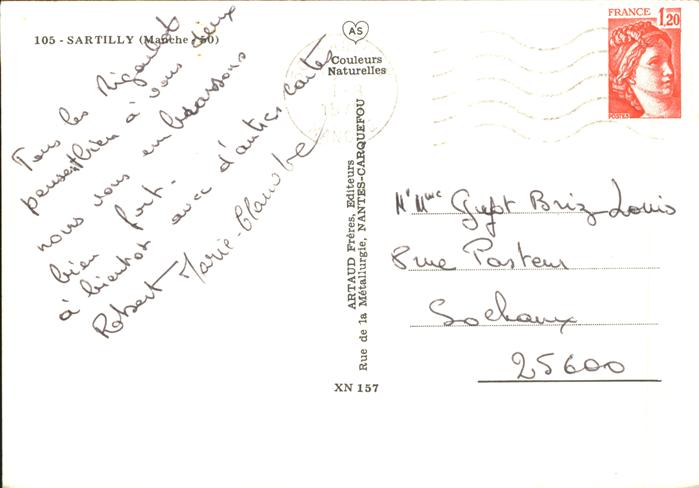 105 - SARTILLY (Manche - 50)
Tous les Rigault
pensent bien à vous deux
nous vous embrassons
bien fort.
à bientôt avec d'autres cartes
Robert Marie-Claude
AS
Couleurs
Naturelles
ARTAUD Frères, Editeurs
Rue de la Métallurgie, NANTES-CARQUEFOU
XN 157
FRANCE 1,20
POSTES
Mr Mme Briz Louis
8 rue Pasteur
Sochaux
25600